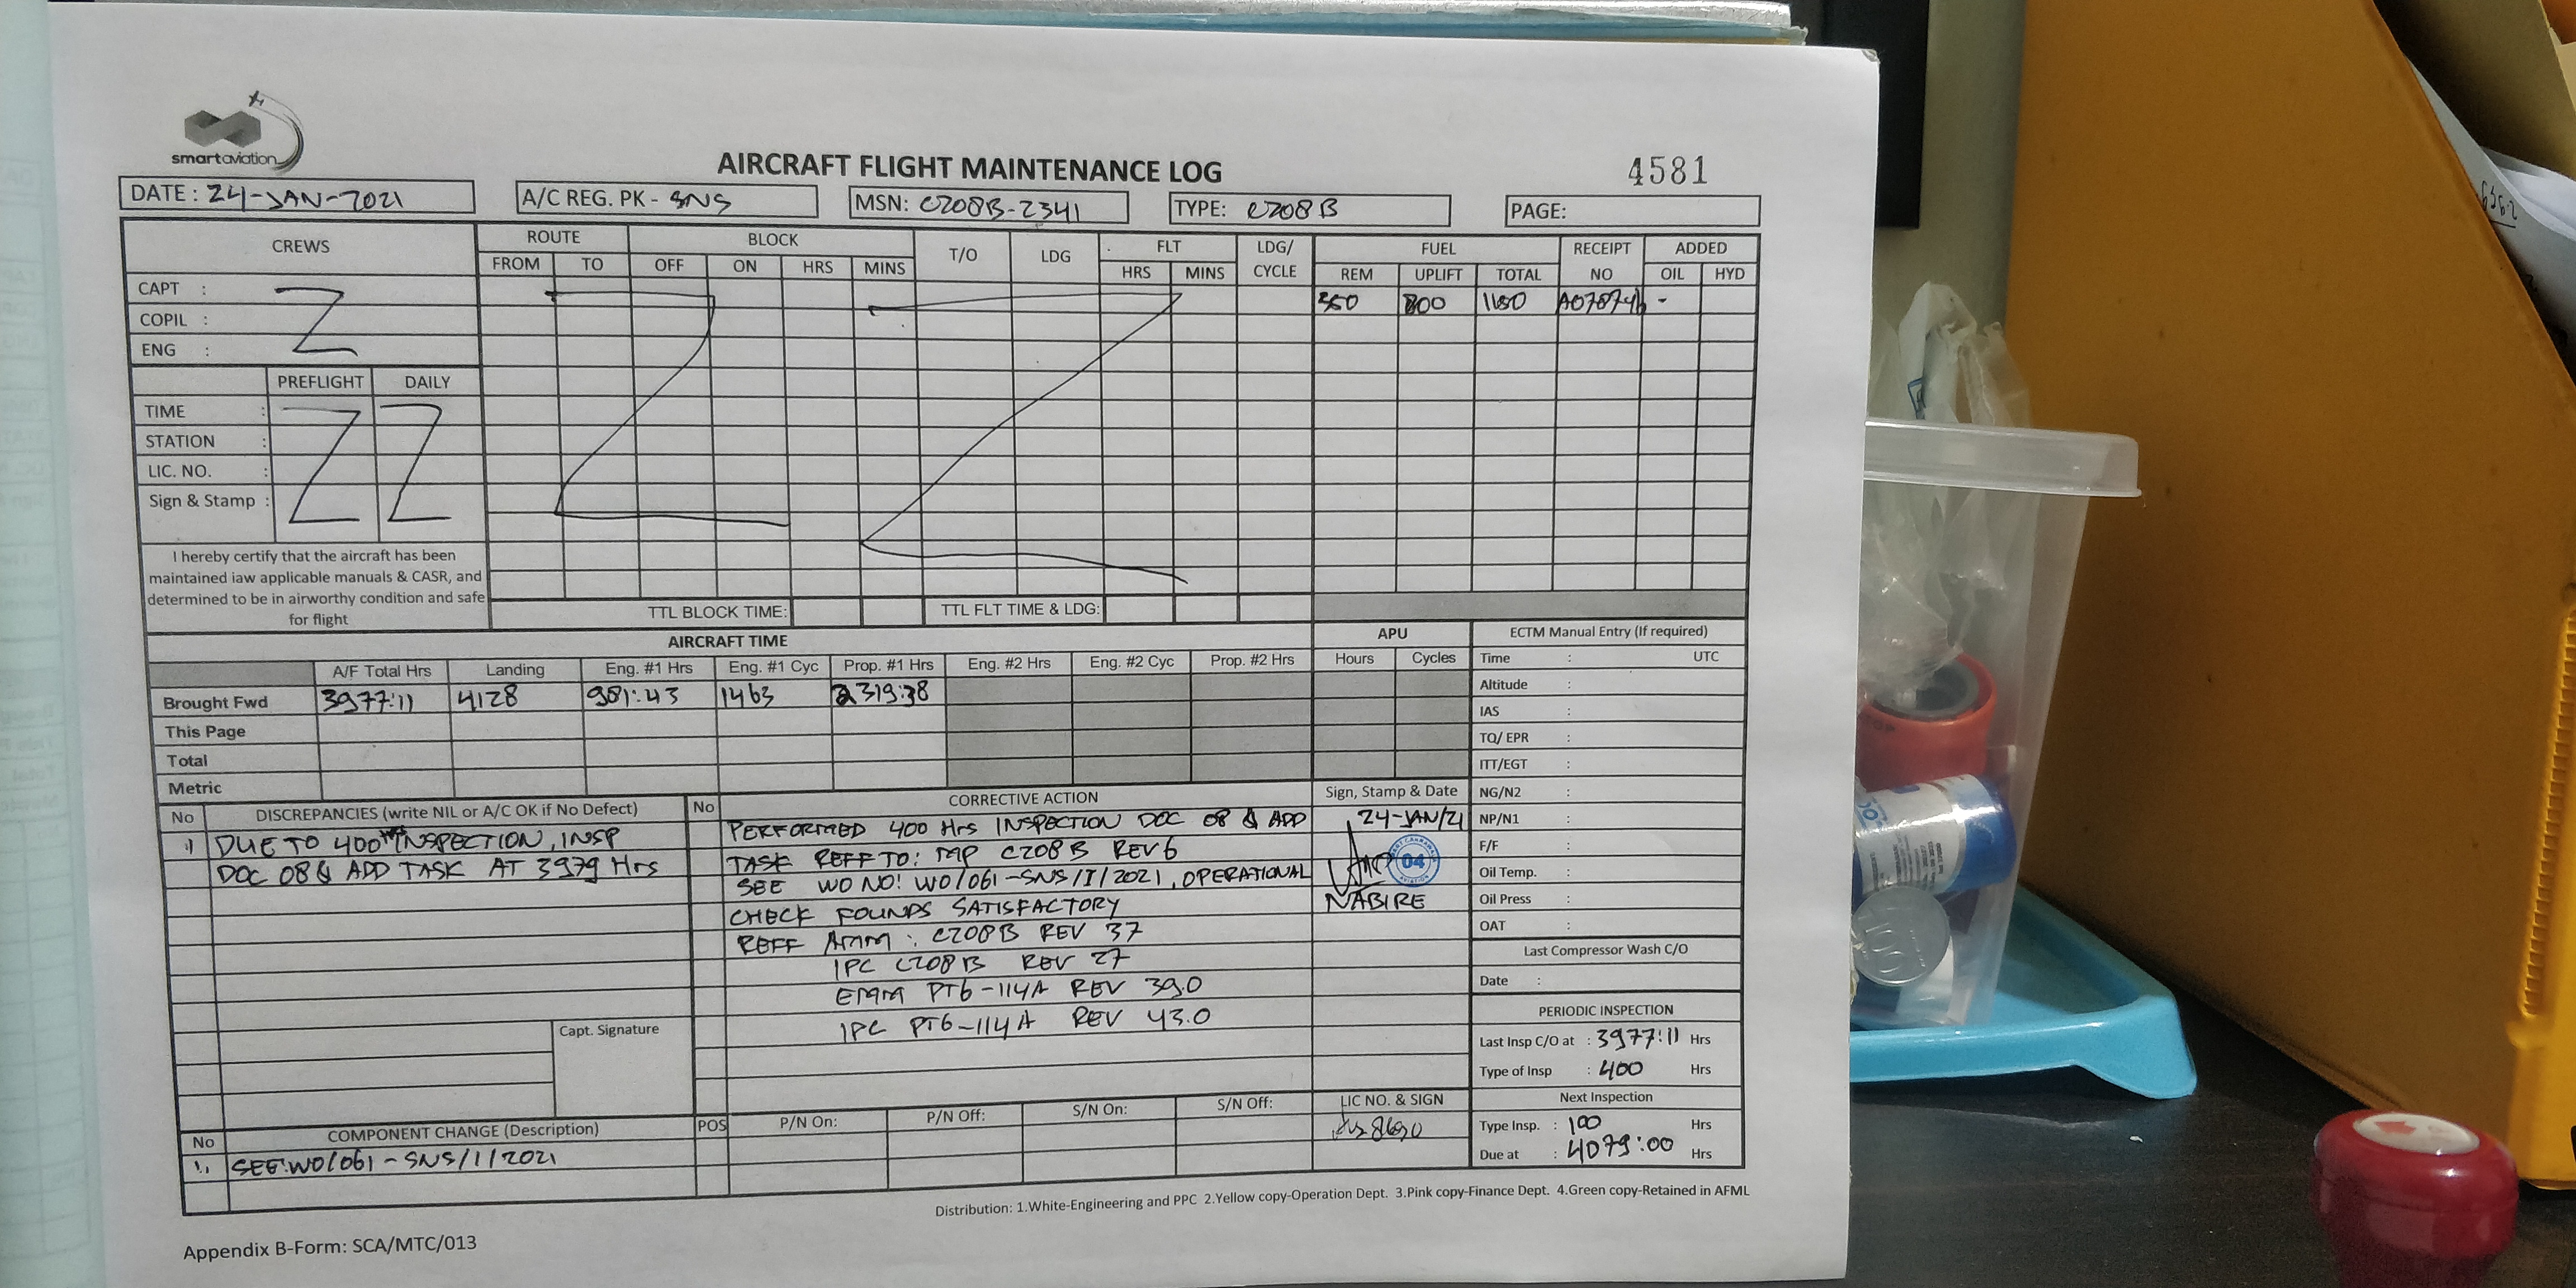 smartaviation
AIRCRAFT FLIGHT MAINTENANCE LOG
4581
DATE : 24-JAN-2021
A/C REG. PK - SNS
MSN: C208B-2341
TYPE: C208B
PAGE:
CREWS
ROUTE BLOCK T/O LDG FLT LDG/ CYCLE FUEL RECEIPT NO ADDED
FROM TO OFF ON HRS MINS HRS MINS REM UPLIFT TOTAL OIL HYD
CAPT :
COPIL :
ENG :
350 800 1150 A078746 -
PREFLIGHT DAILY
TIME :
STATION :
LIC. NO. :
Sign & Stamp :
I hereby certify that the aircraft has been
maintained iaw applicable manuals & CASR, and
determined to be in airworthy condition and safe
for flight
TTL BLOCK TIME: TTL FLT TIME & LDG:
AIRCRAFT TIME APU
A/F Total Hrs Landing Eng. #1 Hrs Eng. #1 Cyc Prop. #1 Hrs Eng. #2 Hrs Eng. #2 Cyc Prop. #2 Hrs Hours Cycles
Brought Fwd 3977:11 4128 981:43 1463 2319:38
This Page
Total
Metric
No DISCREPANCIES (write NIL or A/C OK if No Defect)
1) DUE TO 400 Hrs INSPECTION, INSP
DOC 08 & ADD TASK AT 3979 Hrs
Capt. Signature
No CORRECTIVE ACTION
PERFORMED 400 Hrs INSPECTION DOC 08 & ADD
TASK REFF TO: MP C208B REV 6
SEE WO NO: WO/061-SNS/I/2021, OPERATIONAL
CHECK FOUNDS SATISFACTORY
REFF AMM : C208B REV 37
IPC C208B REV 27
EMM PT6-114A REV 39.0
IPC PT6-114A REV 43.0
Sign, Stamp & Date
24-JAN/21
04
AVIATION
NABIRE
ECTM Manual Entry (If required)
Time : UTC
Altitude :
IAS :
TQ/ EPR :
ITT/EGT :
NG/N2 :
NP/N1 :
F/F :
Oil Temp. :
Oil Press :
OAT :
Last Compressor Wash C/O
Date :
PERIODIC INSPECTION
Last Insp C/O at : 3977:11 Hrs
Type of Insp : 400 Hrs
Next Inspection
Type Insp. : 100 Hrs
Due at : 4079:00 Hrs
No COMPONENT CHANGE (Description) POS P/N On: P/N Off: S/N On: S/N Off: LIC NO. & SIGN
1. SEE:WO/061-SNS/I/2021
8690
Distribution: 1.White-Engineering and PPC 2.Yellow copy-Operation Dept. 3.Pink copy-Finance Dept. 4.Green copy-Retained in AFML
Appendix B-Form: SCA/MTC/013